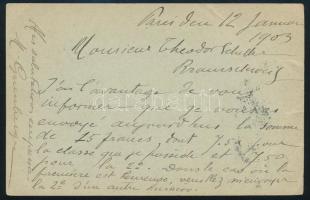 Paris den 12 Januar
1903
Monsieur Theodor
Braunschweig
J'ai l'avantage de vous
informer que je vous ai
envoyé aujourd'hui la somme
de 15 francs, dont 7.50 pour
la classe que je possède et 7.50
pour la 2e. Dans le cas où la
première est heureuse, veuillez m'envoyer
la 2e d'un autre numéro.
Mes salutations